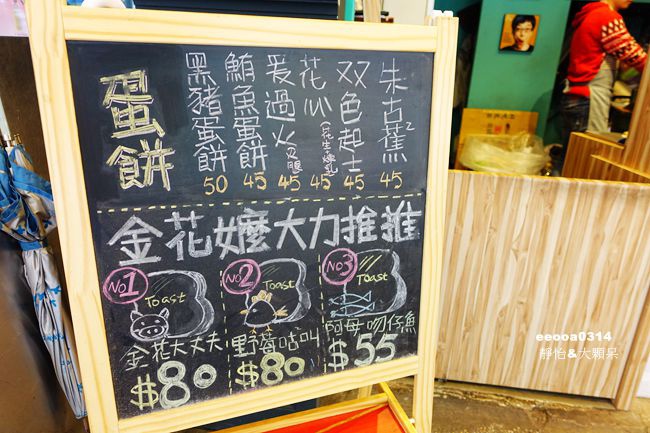 蛋餅
黑豬蛋餅 50
鮪魚蛋餅 45
爱過火 45
花心(花生+煉乳) 45
双色起士 45
朱古蕉² 45
金花嬤大力推推
NO1 Toast
金花大丈夫
$80
NO2 Toast
野莓咕叫
$80
NO3 Toast
阿母吻仔魚
$55
eeooa0314
靜怡&大顆呆